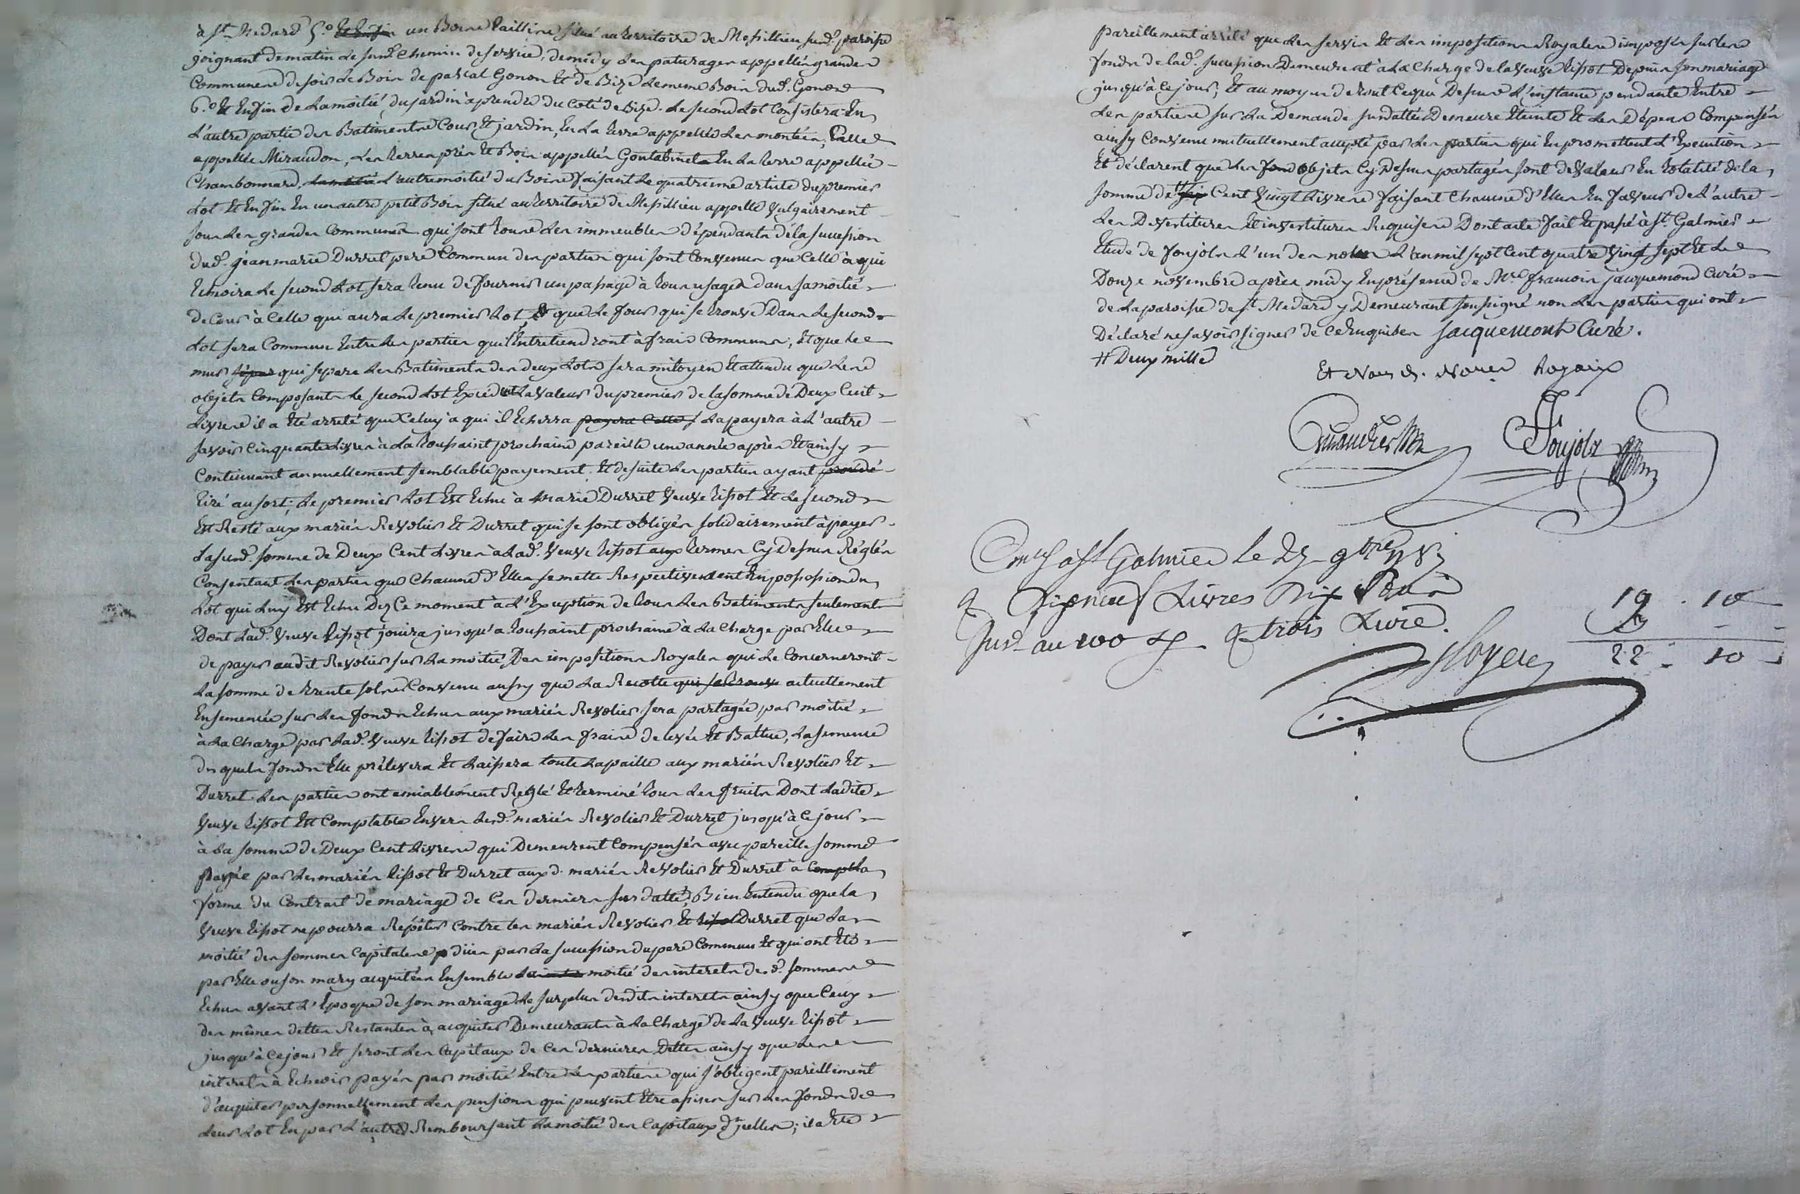 à St. Medard 5.o et Enfin un Bois taillis situé au territoire de Messillieu susd. paroisse
joignant de matin le susd. Chemin de service, de midy les paturages appellés grandes
Communes de soir le Bois de pascal Gonon et de Bize le meme Bois dud. Gonon
6.o et Enfin de la moitié du jardin a prendre du coté de Bize. le second lot consistera En
l'autre partie des Batiments Cour et jardin, En la terre appellée les montées, Celle
appellée Miraudon, les terres prés et Bois appellés Gontabinet En la terre appellée
Chambonnard, la moitié l'autre moitié du Bois faisant le quatrieme article du premier
lot et Enfin En un autre petit Bois situé au territoire de Messillieu appellé Vulgairement
sous les grandes Communes qui sont tous les immeubles dépendants de la succession
dud. jean marie Durret pere Commun des parties qui sont Convenues que Celle à qui
Echoira le second lot sera tenu de fournir un passage à tous usages dans sa moitié
de Cour à Celle qui aura le premier lot, et que le four qui se trouve Dans le second
lot sera Commun Entre les parties qui l'Entretiendront à frais Communs, Et que le
mur qui separe les Batiments des deux lots sera mitoyen Et attendu que les
objets Composant le second lot Excedent la valeur du premier de la somme de Deux Cent
livres il a été arreté que Celuy a qui il Echerra payera Celle la payera à l'autre
savoir Cinquante livres à la toussaint prochaine pareille une année après Et ainsy
Continuant annuellement semblable payement. Et de suite les parties ayant procedé
tiré au sort; le premier lot Est Echu à marie Durret Veuve tissot Et le second
Est Resté aux mariés Revolier Et Durret qui se sont obligés solidairement à payer
la susd. somme de Deux Cent livres à lad. Veuve tissot aux termes Cy Dessus Réglés
Consentant les parties que Chacune d'Elles se mette Respectivement En possession du
lot qui luy Est Echu Dez Ce moment à l'Exception de tous les Batiments seulement
Dont lad. Veuve tissot jouira jusqu'a toussaint prochaine à la Charge par Elle
de payer audit Revolier sur la moitié Des impositions Royales qui le Concerneront
la somme de trente sols Convenu aussy que la Recolte qui se trouve actuellement
Ensemencée sur les fonds Echus aux mariés Revolier sera partagée par moitié
à la Charge par lad. Veuve tissot de faire les frais de levée Et Battue, la semence
desquels fonds Elle prélevera Et laissera toute la paille aux mariés Revolier Et
Durret les parties ont amiablement Reglé Et terminé tous les fruits Dont ladite
Veuve tissot Est Comptable Envers lesd. mariés Revolier Et Durret jusqu'à Ce jour
à la somme de Deux Cent livres qui Demeurent Compensés avec pareille somme
payée par les mariés tissot Et Durret auxd. mariés Revolier Et Durret à Compte la
forme du Contrat de mariage de Ces derniers sus daté, Bien Entendu que la
Veuve tissot ne pourra Répéter Contre les mariés Revolier Et tissot Durret que la
moitié des sommes Capitales düés par la succession du pere Commun Et qui ont Eté
par Elle ou son mary acquitées Ensemble moitié des interets desd. sommes
Echus avant l'Epoque de son mariage le surplus desdits interets ainsy que Ceux
des mêmes dettes Restantes à acquiter Demeurants à la Charge de la Veuve tissot
jusqu'à Ce jour Et seront les Capitaux de Ces dernieres Dettes ainsy que les
interets à Echeoir payés par moitié Entre les parties qui s'obligent pareillement
d'acquiter personnellement les pensions qui peuvent Etre assises sur les fonds de
leur lot En par l'autre Remboursant la moitié des Capitaux d'jcelles; il a Eté
pareillement arrêté que les servis Et les impositions Royales imposés sur les
fonds de lad. succession Demeurent à la Charge de la Veuve tissot Depuis son mariage
jusqu'à Ce jour, Et au moyen de tout Ceque Dessus l'instance pendante Entre
les parties sur la Demande susdattée Demeure Eteinte Et les Dépens Compensés
ainsy Convenu mutuellement accepté par les parties qui En promettent l'Execution
Et déclarent que les fonds objets Cy Dessus partagés sont de valeur En totalité de la
somme de # Cent Vingt livres faisant Chacune d'Elles En faveur de l'autre
les Devestitures Et investitures Requises Dont acte fait Et passé à St. Galmier
Etude de Foujols l'un des notres l'an mil sept Cent quatre Vingt sept Et le
Douze novembre après midy En présence de Mre. francois jacquemond Curé
de la paroisse de St. Medard y Demeurant soussigné non les parties qui ont
Déclaré ne savoir signer de Ce Enquises jacquemont Curé.
# Deux mille
Et Nous Nores Royaux
Foujols
St. Galmier le 9bre
Dixneuf Livres Dix Sous
au 100 trois Livre.
19 . 10
22 . 10